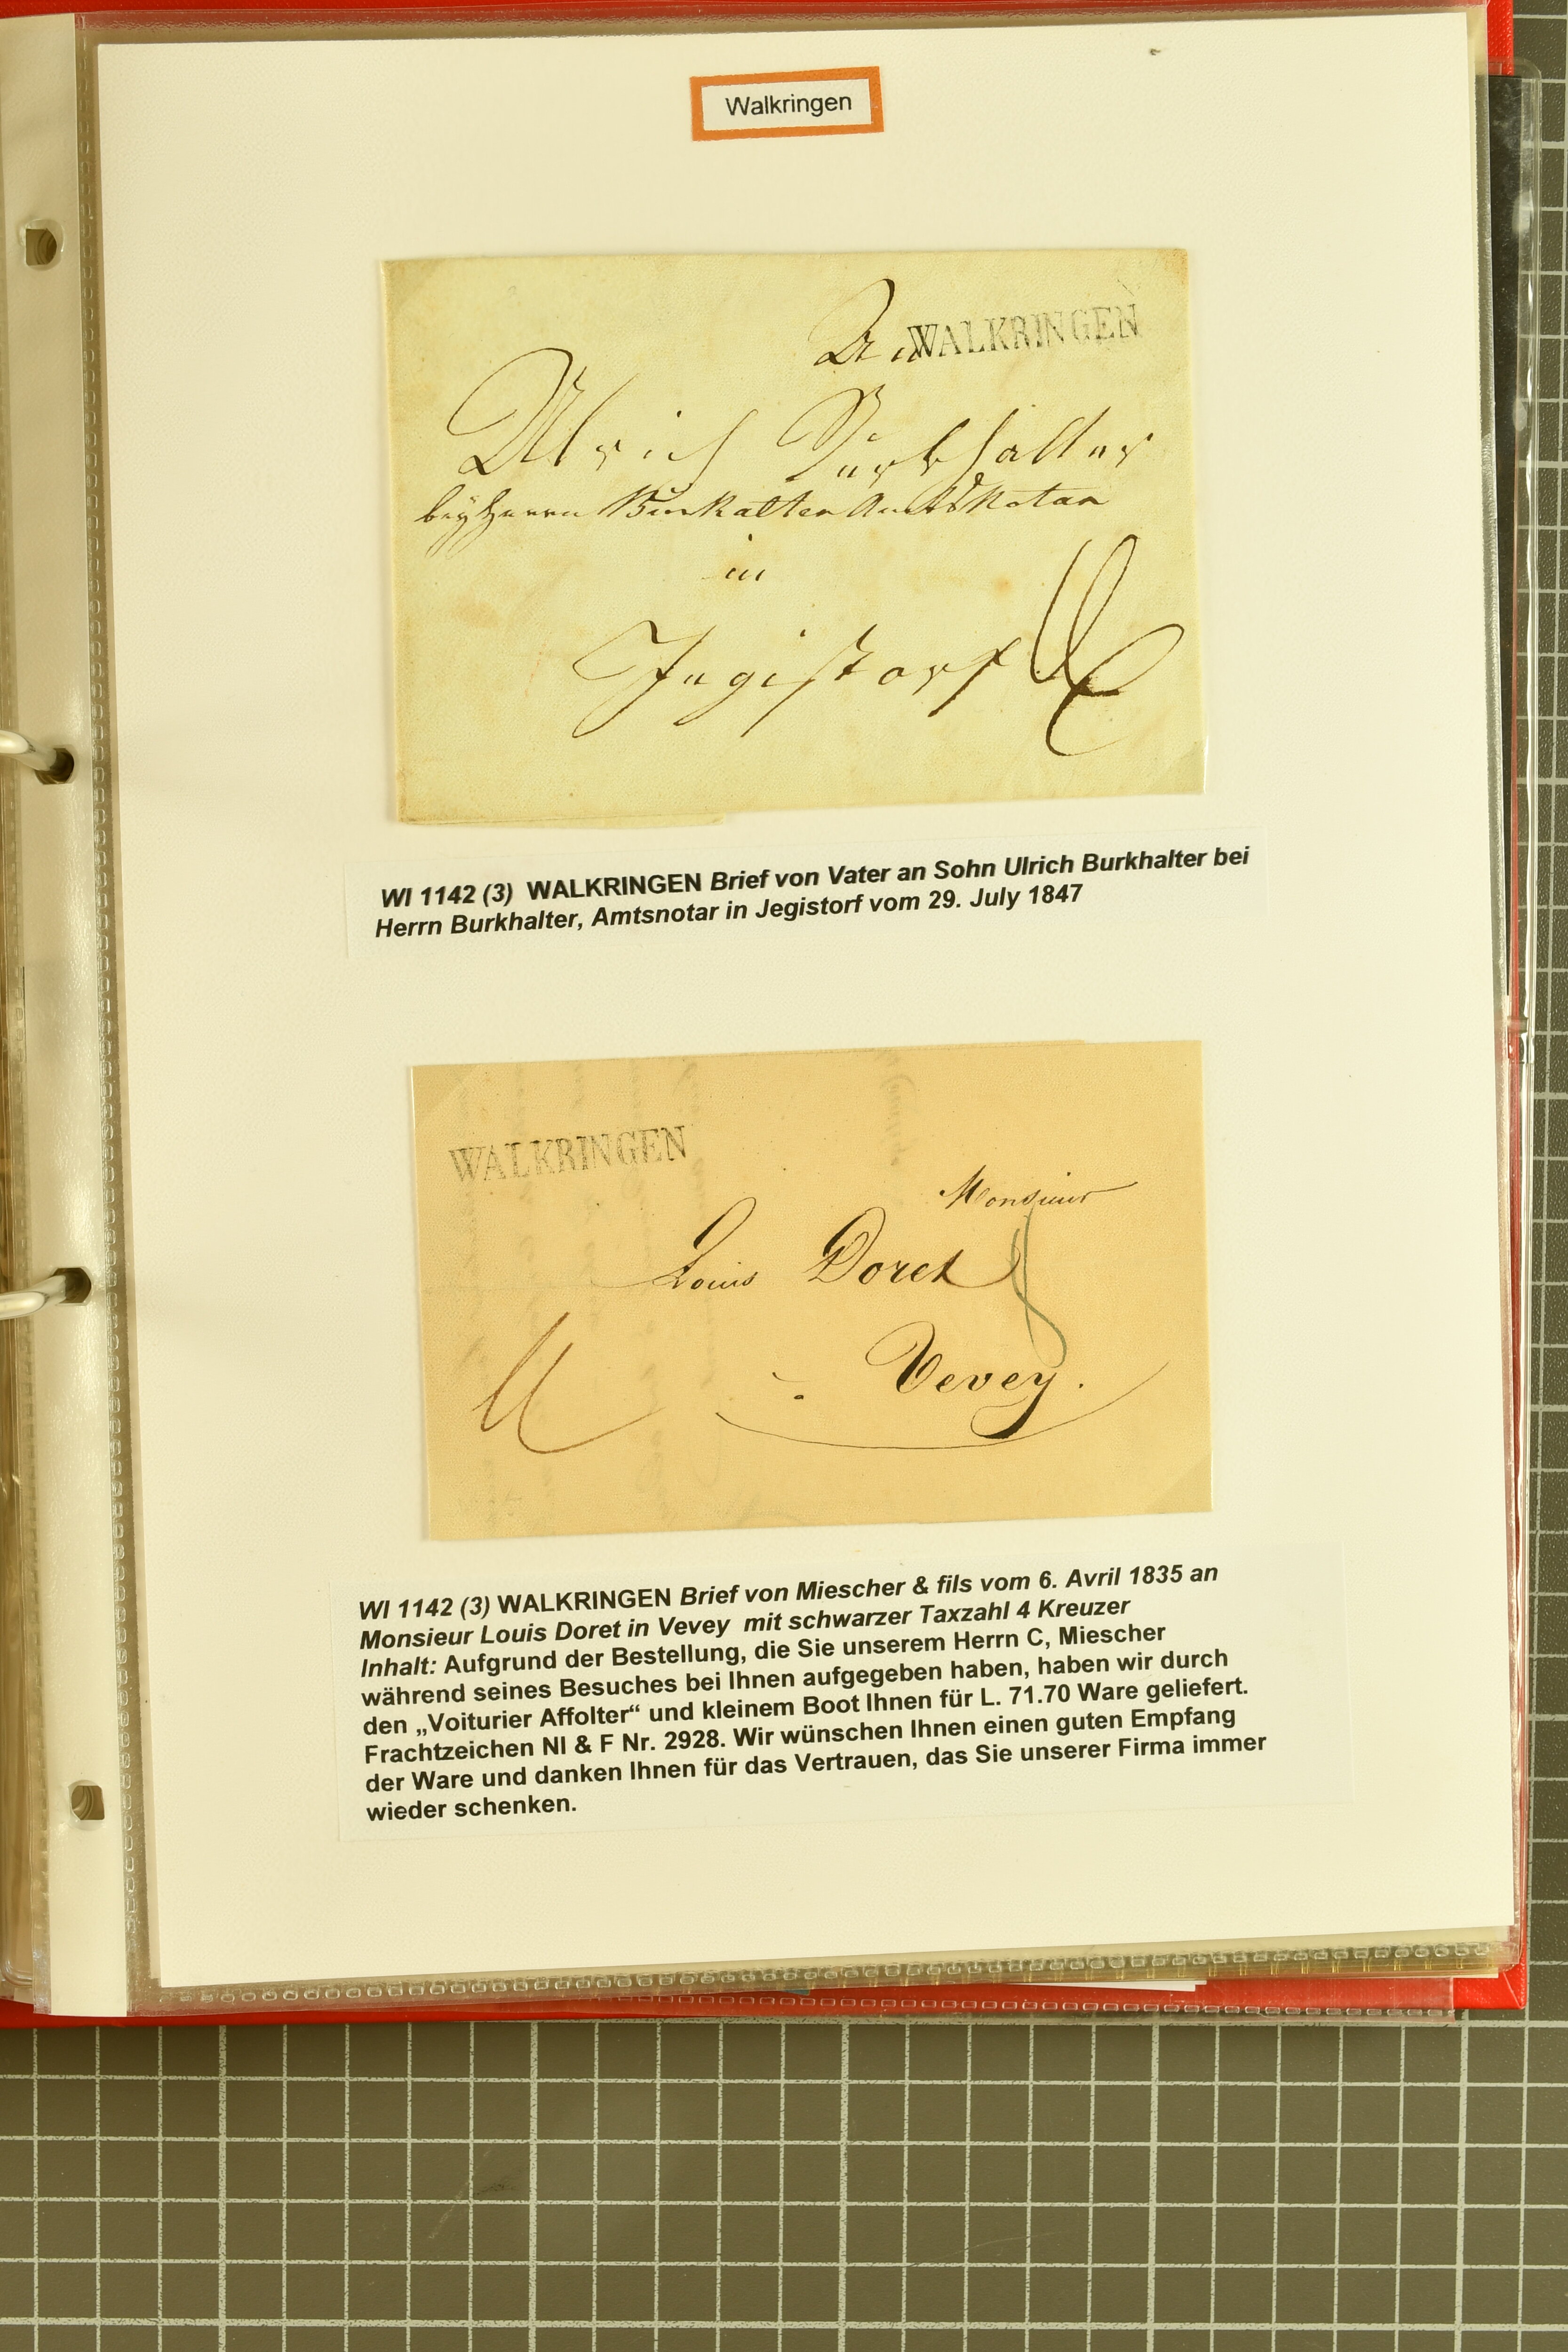 Walkringen
An WALKRINGEN
Ulrich Burkhalter
bey Herrn Burkalter Amtsnotar
in
Jegistorf
WI 1142 (3) WALKRINGEN Brief von Vater an Sohn Ulrich Burkhalter bei
Herrn Burkhalter, Amtsnotar in Jegistorf vom 29. July 1847
WALKRINGEN
Monsieur
Louis Doret
8
4
Vevey.
WI 1142 (3) WALKRINGEN Brief von Miescher & fils vom 6. Avril 1835 an
Monsieur Louis Doret in Vevey mit schwarzer Taxzahl 4 Kreuzer
Inhalt: Aufgrund der Bestellung, die Sie unserem Herrn C, Miescher
während seines Besuches bei Ihnen aufgegeben haben, haben wir durch
den „Voiturier Affolter“ und kleinem Boot Ihnen für L. 71.70 Ware geliefert.
Frachtzeichen NI & F Nr. 2928. Wir wünschen Ihnen einen guten Empfang
der Ware und danken Ihnen für das Vertrauen, das Sie unserer Firma immer
wieder schenken.